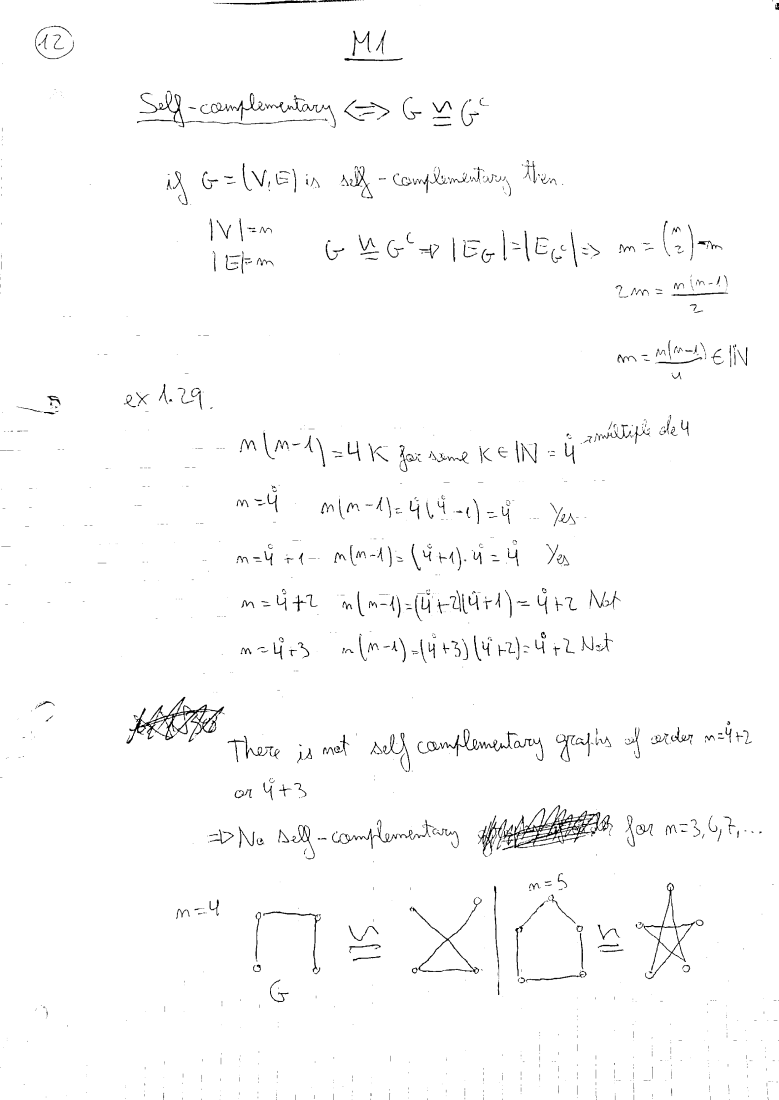 12
M1
Self-complementary ⇔ G ≅ G^c
if G = (V, E) is self-complementary then.
|V|=n
|E|=m
G ≅ G^c ⇒ |E_G|=|E_G^c| ⇒ m = (n 2) - m
2m = n(n-1)/2
m = n(n-1)/4 ∈ ℕ
ex 1.29.
n(n-1) = 4K for some K ∈ ℕ = 4̊ → múltiplo de 4
n=4̊ n(n-1) = 4̊(4̊-1) = 4̊ Yes
n=4̊+1 n(n-1) = (4̊+1)·4̊ = 4̊ Yes
n=4̊+2 n(n-1) = (4̊+2)(4̊+1) = 4̊+2 Not
n=4̊+3 n(n-1) = (4̊+3)(4̊+2) = 4̊+2 Not
There is not self complementary graphs of order n=4̊+2
or 4̊+3
⇒ No self-complementary for n=3,6,7,...
n=4 ≅ n=5 ≅
G